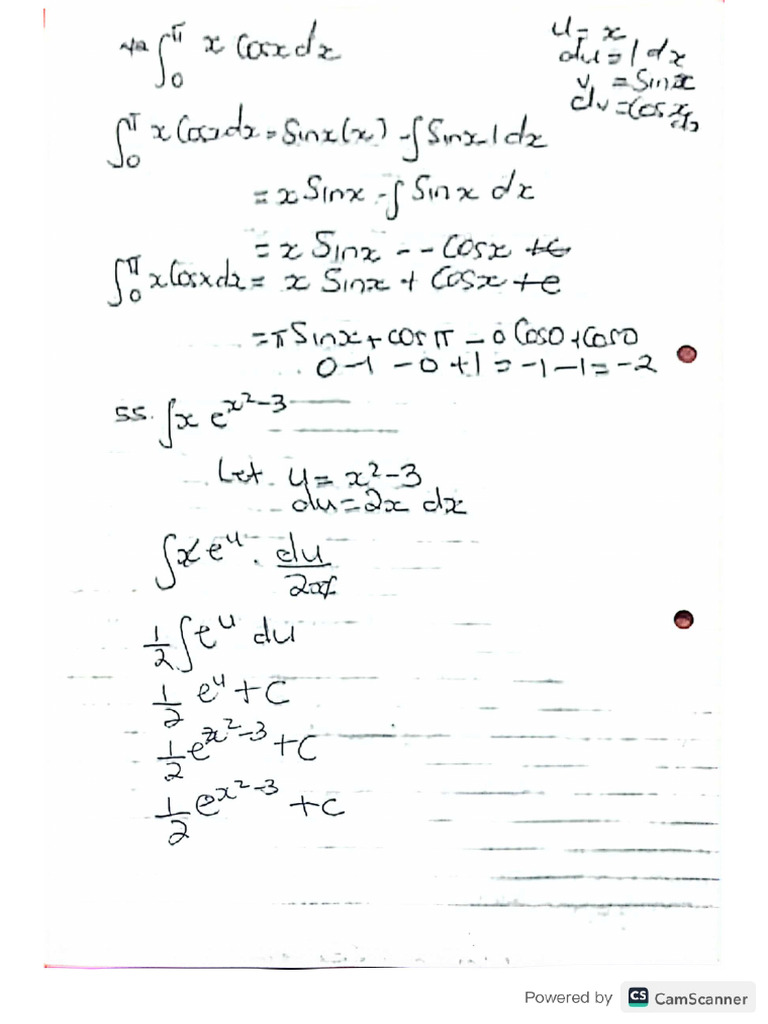 ∫₀^π x Cosx dx
u = x
du = 1 dx
v = Sinx
dv = Cosx dx
∫₀^π x Cosx dx = Sinx(x) - ∫ Sinx 1 dx
= x Sinx - ∫ Sinx dx
= x Sinx - - Cosx + c
∫₀^π x Cosx dx = x Sinx + Cosx + c
= π Sinx + cos π - 0 Cos0 + Cos0
0 - 1 - 0 + 1 = -1 - 1 = -2
55. ∫ x e^(x²-3)
Let u = x² - 3
du = 2x dx
∫ x e^u . du/2x
1/2 ∫ e^u du
1/2 e^u + C
1/2 e^(x²-3) + C
1/2 e^(x²-3) + C
Powered by CS CamScanner